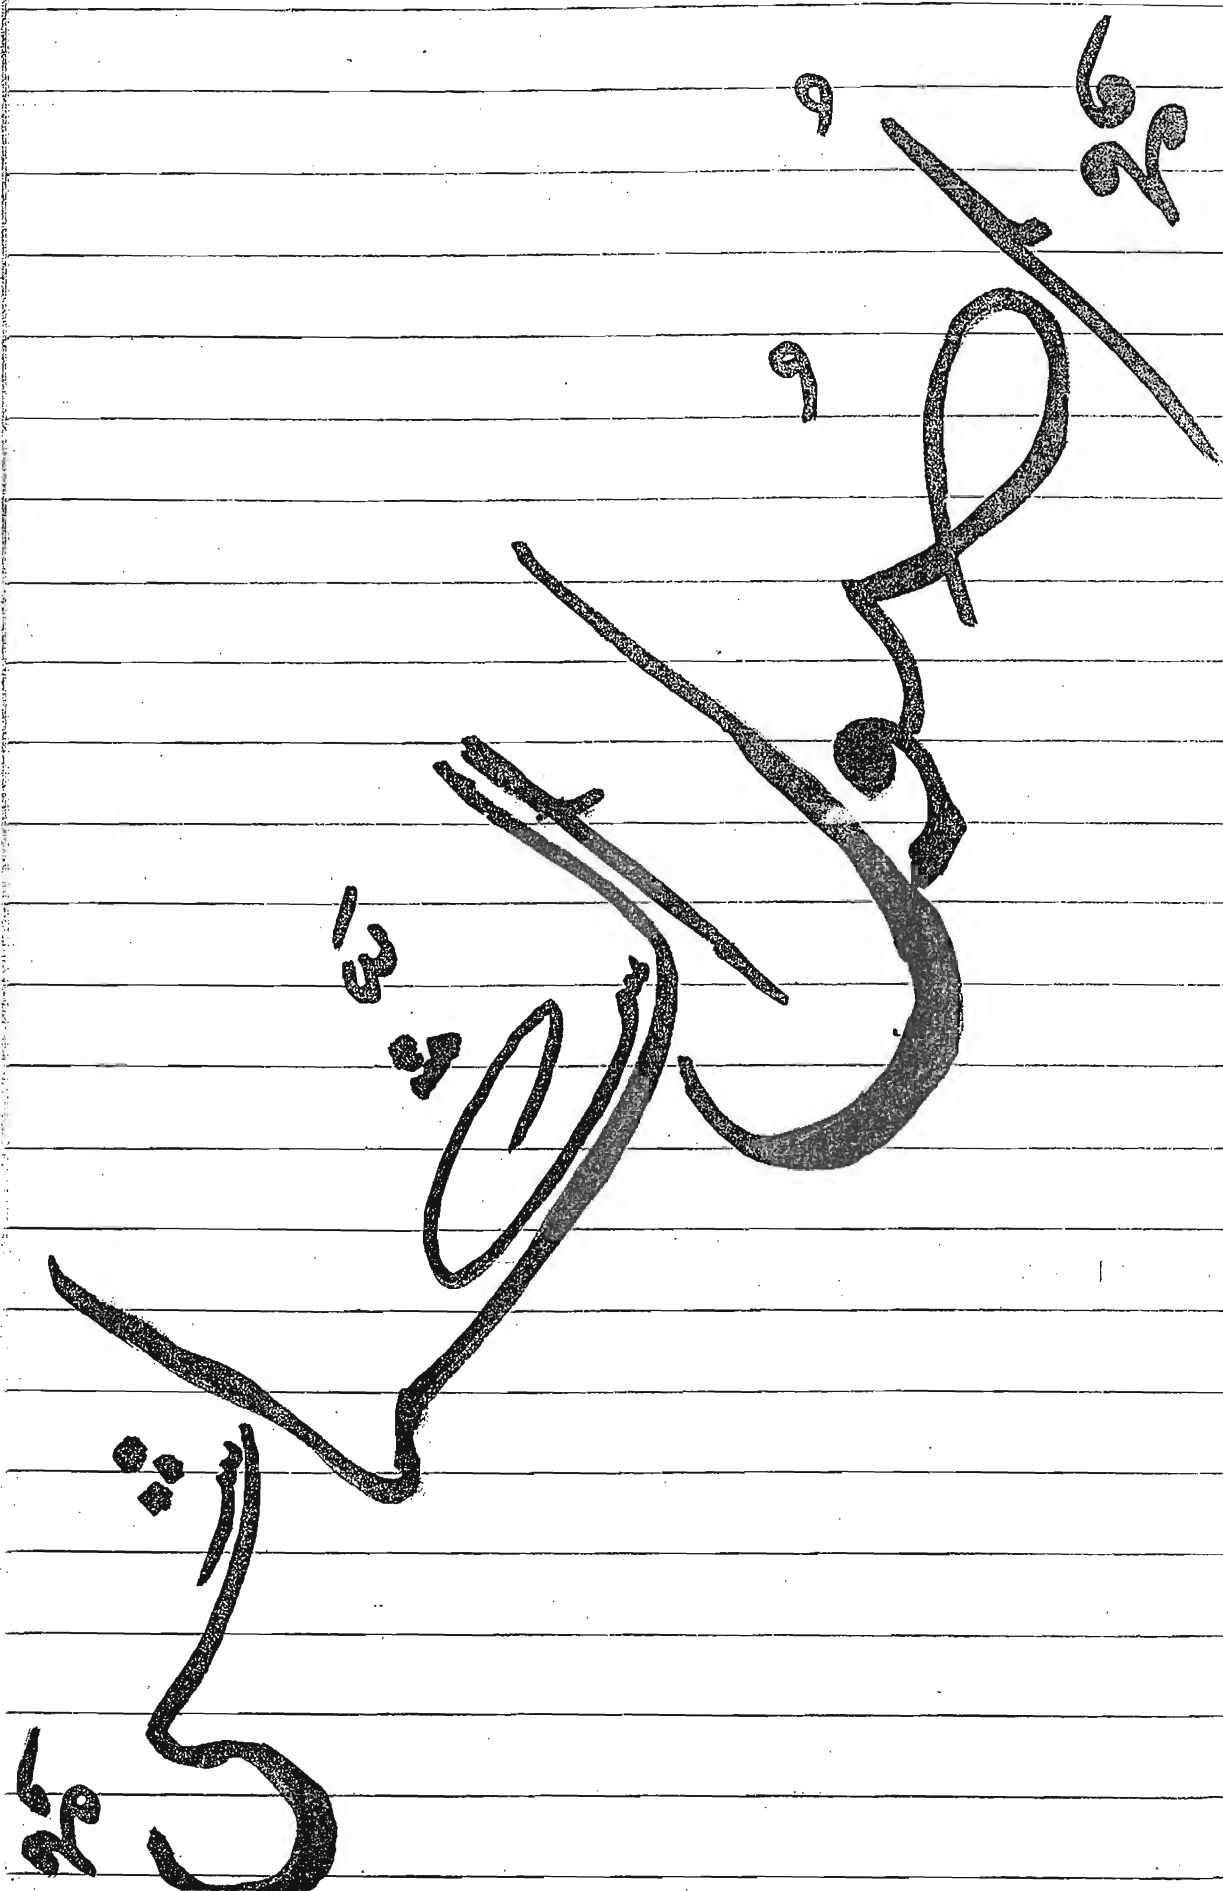 اصول الشاشی